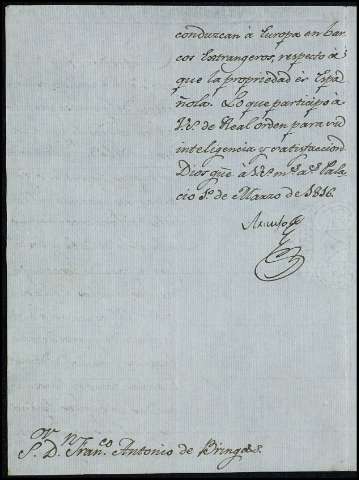 conduzcan à Europa en bar
cos Estrangeros, respecto à
que la propriedad es Espa
ñola. Lo que participo à
V.S. de Real orden para su
inteligencia y satisfaccion
Dios gue. à V.S. ms. as. Pala
cio 1o. de Marzo de 1816.
Araujo
Sor. Dn. Franco. Antonio de Bringas.